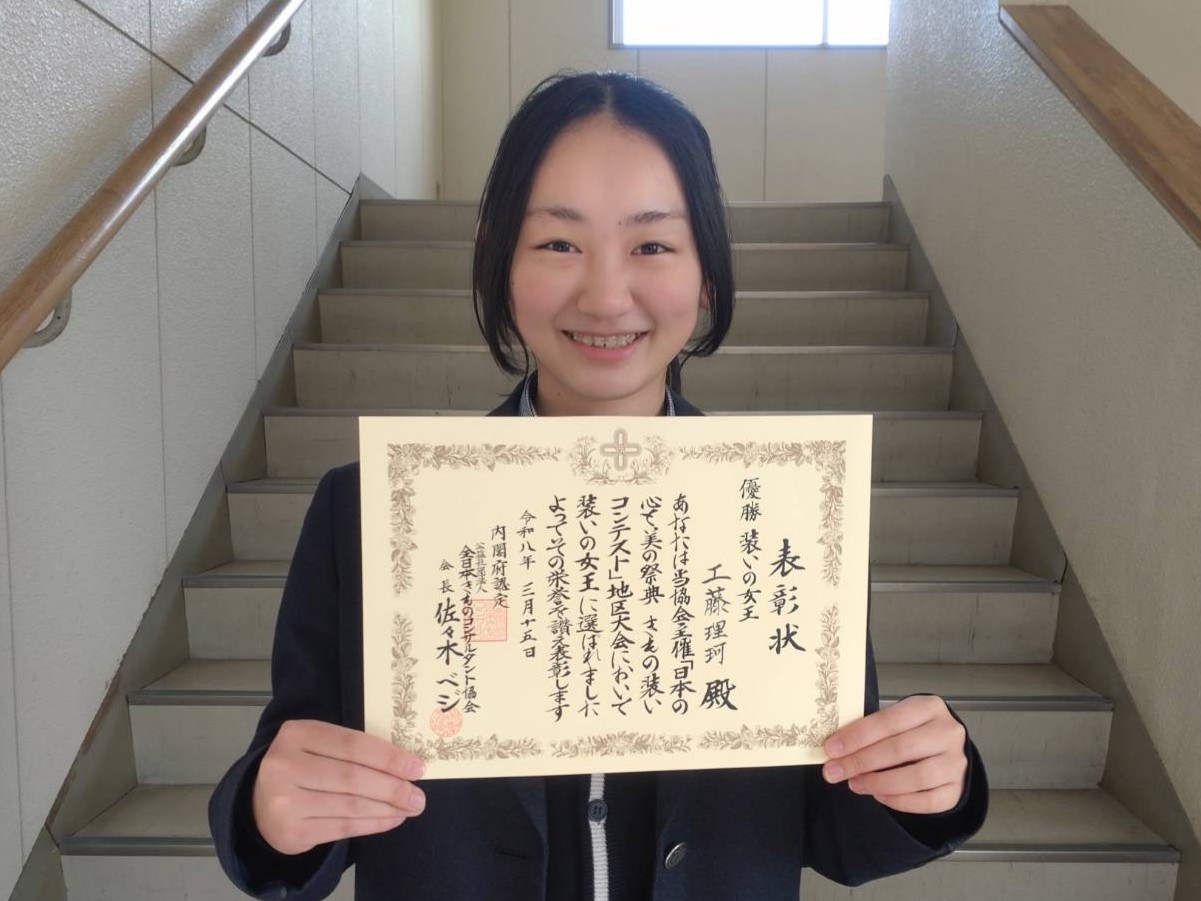 表彰状
優勝 装いの女王
工藤理珂 殿
あなたは当協会主催「日本の
心で美の祭典 きもの装い
コンテスト」地区大会において
装いの女王に選ばれました
よってその栄誉を讃え表彰します
令和八年 三月十五日
内閣府認定
公益社団法人
全日本きものコンサルタント協会
会長 佐々木ベジ